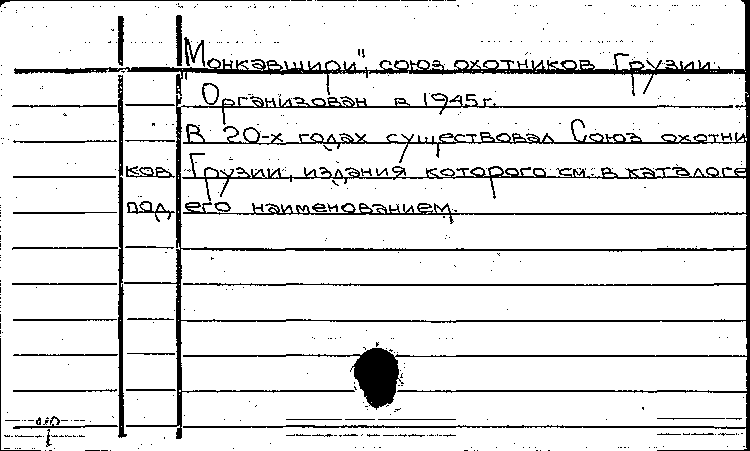 "Монкавшири", союз охотников Грузии.
Организован в 1945 г.
В 20-х годах существовал Союз охотни
ков Грузии, издания которого см. в каталоге
под его наименованием.